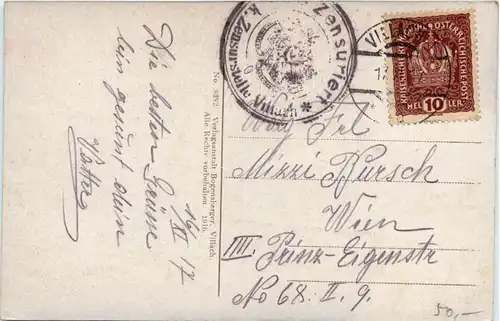 16/XI 17
Die besten Grüsse
Vatter
No. 8392 Verlagsanstalt Bogensberger, Villach.
Alle Rechte vorbehalten 1916.
Zensuriert
k. Zensurstelle Villach *
VILL
KAISERLICHE KÖNIGLICHE ÖSTERREICHISCHE POST
10
HELLER
Frl
Mizzi Bursch
Wien
III. Prinz-Eigenstr
No 68. II. 9.
50,-